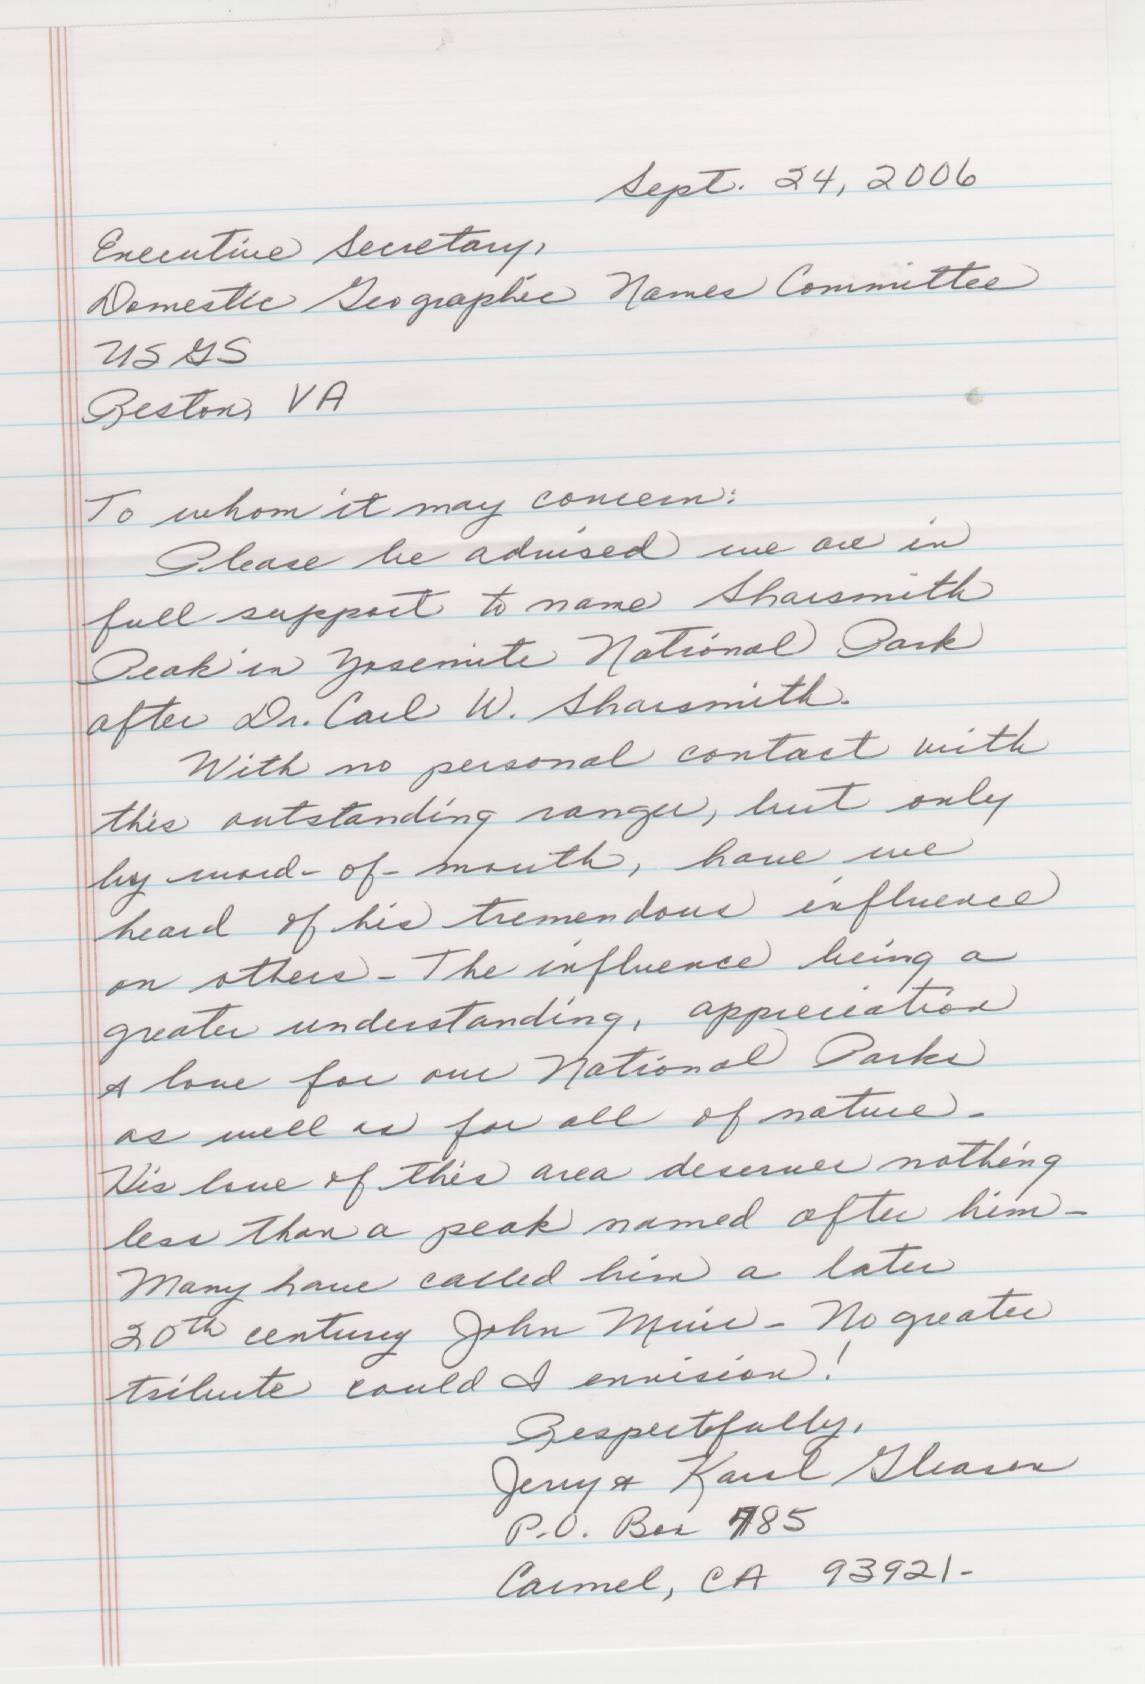 Sept. 24, 2006
Executive Secretary,
Domestic Geographic Names Committee
USGS
Reston, VA
To whom it may concern:
Please be advised we are in
full support to name Sharsmith
Peak in Yosemite National Park
after Dr. Carl W. Sharsmith.
With no personal contact with
this outstanding ranger, but only
by word-of-mouth, have we
heard of his tremendous influence
on others - The influence being a
greater understanding, appreciation
& love for our National Parks
as well as for all of nature -
His love of this area deserves nothing
less than a peak named after him -
Many have called him a later
20th century John Muir - No greater
tribute could I envision!
Respectfully,
Jerry & Karol Gleason
P.O. Box 785
Carmel, CA 93921-